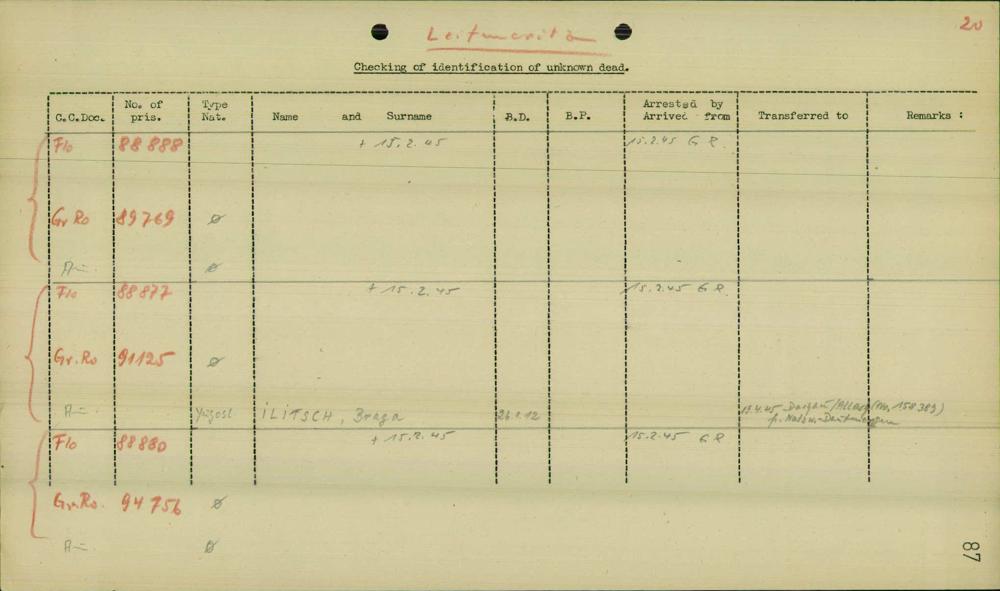 20
Leitmeritz
Checking of identification of unknown dead.
C.C.Doc. No. of pris. Type Nat. Name and Surname B.D. B.P. Arrested by Arrived from Transferred to Remarks :
Flo 88 888 + 15.2.45 15.2.45 G.R.
Gr Ro 89769 ø
A=. ø
Flo 88877 + 15.2.45 15.2.45 G.R.
Gr.Ro 91125 ø
A=. Yugosl ILITSCH, Braga 26.1.12 17.4.45 Dachau/Allach (No. 158389)
f. Natzw.-Dautmergen
Flo 88880 + 15.2.45 15.2.45 G.R.
Gr.Ro. 94756 ø
A=. ø
87